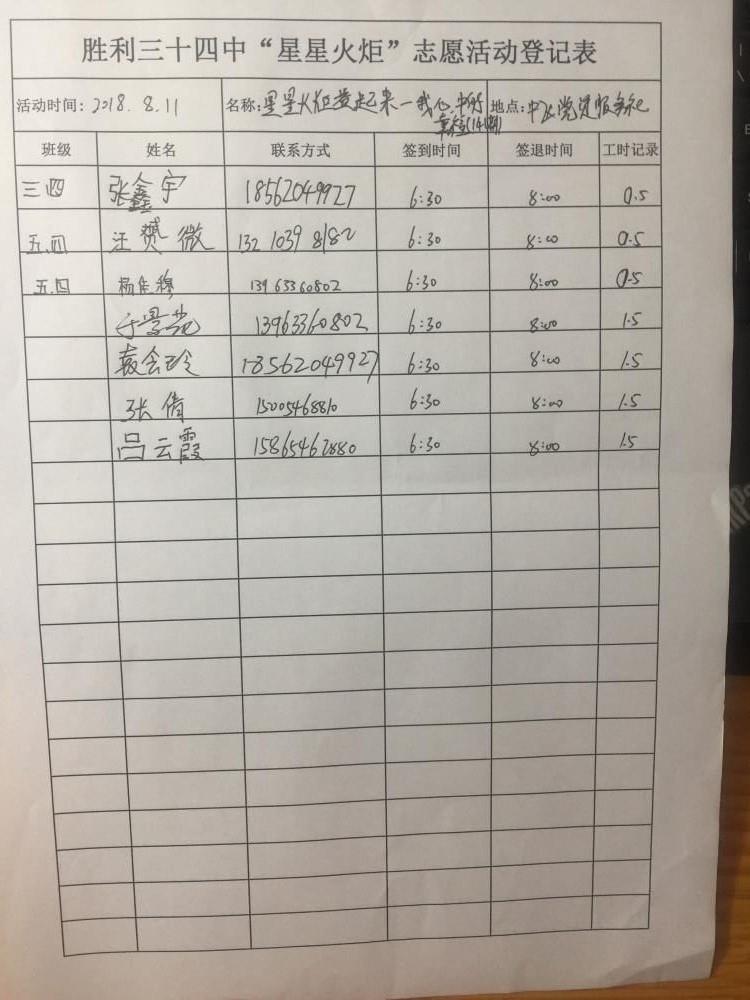 胜利三十四中“星星火炬”志愿活动登记表
活动时间: 2018. 8. 11 名称: 星星火炬燃起来—我心中的 地点: 中心党员服务社
班级 姓名 联系方式 签到时间 签退时间 工时记录
三.四 张鑫宇 18562049927 6:30 8:00 0.5
五.四 汪赟微 132 1039 8182 6:30 8:00 0.5
五.四 杨佳穆 13963360802 6:30 8:00 0.5
13963360802 6:30 8:00 1.5
袁会玲 18562049927 6:30 8:00 1.5
张倩 15005468810 6:30 8:00 1.5
吕云霞 15865462880 6:30 8:00 1.5